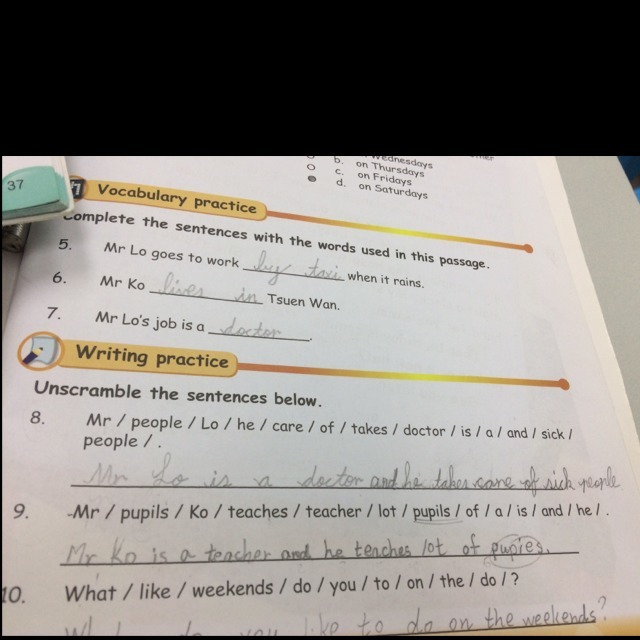 b. Wednesdays
on Thursdays
c. on Fridays
d. on Saturdays
37
Vocabulary practice
Complete the sentences with the words used in this passage.
5. Mr Lo goes to work by taxi when it rains.
6. Mr Ko lives in Tsuen Wan.
7. Mr Lo's job is a doctor.
Writing practice
Unscramble the sentences below.
8. Mr / people / Lo / he / care / of / takes / doctor / is / a / and / sick /
people / .
Mr Lo is a doctor and he takes care of sick people
9. -Mr / pupils / Ko / teaches / teacher / lot / pupils / of / a / is / and / he / .
Mr Ko is a teacher and he teaches lot of pupies.
10. What / like / weekends / do / you / to / on / the / do / ?
What do you like to do on the weekends?